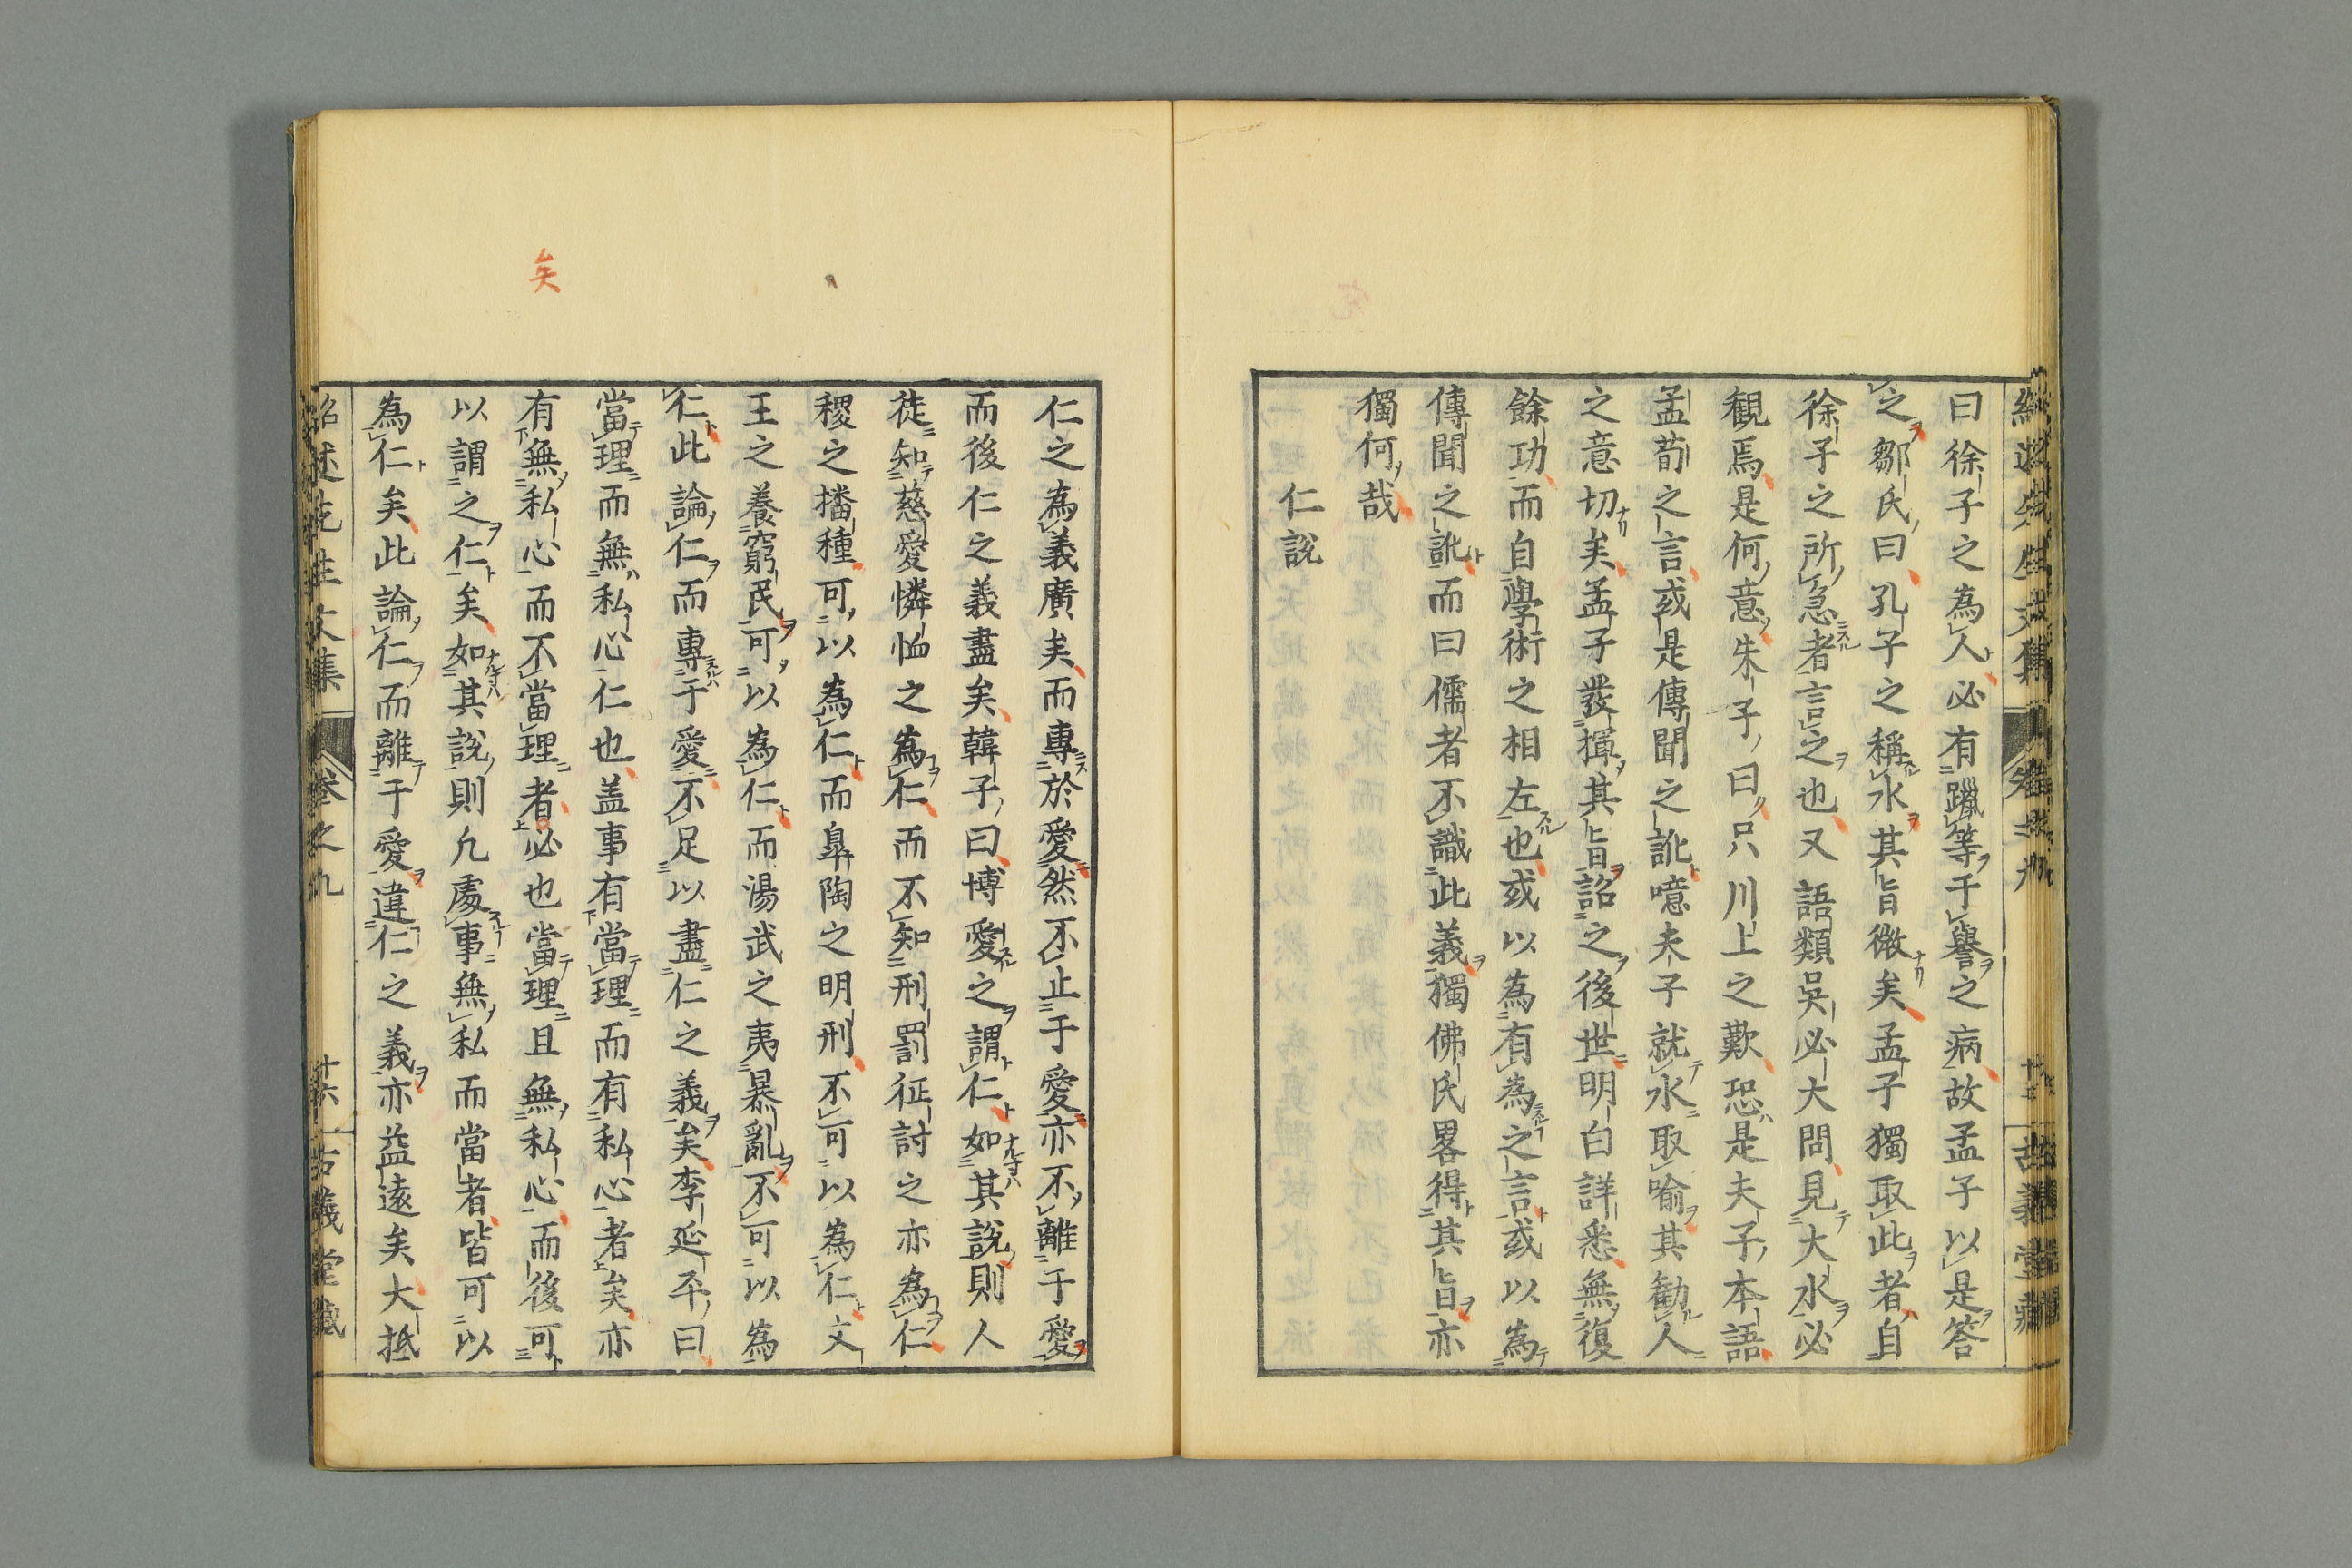 曰徐子之為人必有躐等干譽之病故孟子以是答
之鄒氏曰孔子之稱水其旨微矣孟子獨取此者自
徐子之所急者言之也又語類吳必大問見大水必
觀焉是何意朱子曰只川上之歎恐是夫子本語
孟荀之言或是傳聞之訛噫夫子就水取喻其勸人
之意切矣孟子發揮其旨詔之後世明白詳悉無復
餘功而自學術之相左也或以為有為之言或以為
傳聞之訛而曰儒者不識此義獨佛氏畧得其旨亦
獨何哉
仁說
仁之為義廣矣而專於愛然不止于愛亦不離于愛
而後仁之義盡矣韓子曰博愛之謂仁如其說則人
徒知慈愛憐恤之為仁而不知刑罰征討之亦為仁
稷之播種可以為仁而臯陶之明刑不可以為仁文
王之養窮民可以為仁而湯武之夷暴亂不可以為
仁此論仁而專于愛不足以盡仁之義矣李延平曰
當理而無私心仁也盖事有當理而有私心者矣亦
有無私心而不當理者必也當理且無私心而後可
以謂之仁矣如其說則凡處事無私而當者皆可以
為仁矣此論仁而離于愛違仁之義亦益遠矣大抵
紹述先生文集 卷之九 十六 古義堂藏
矣